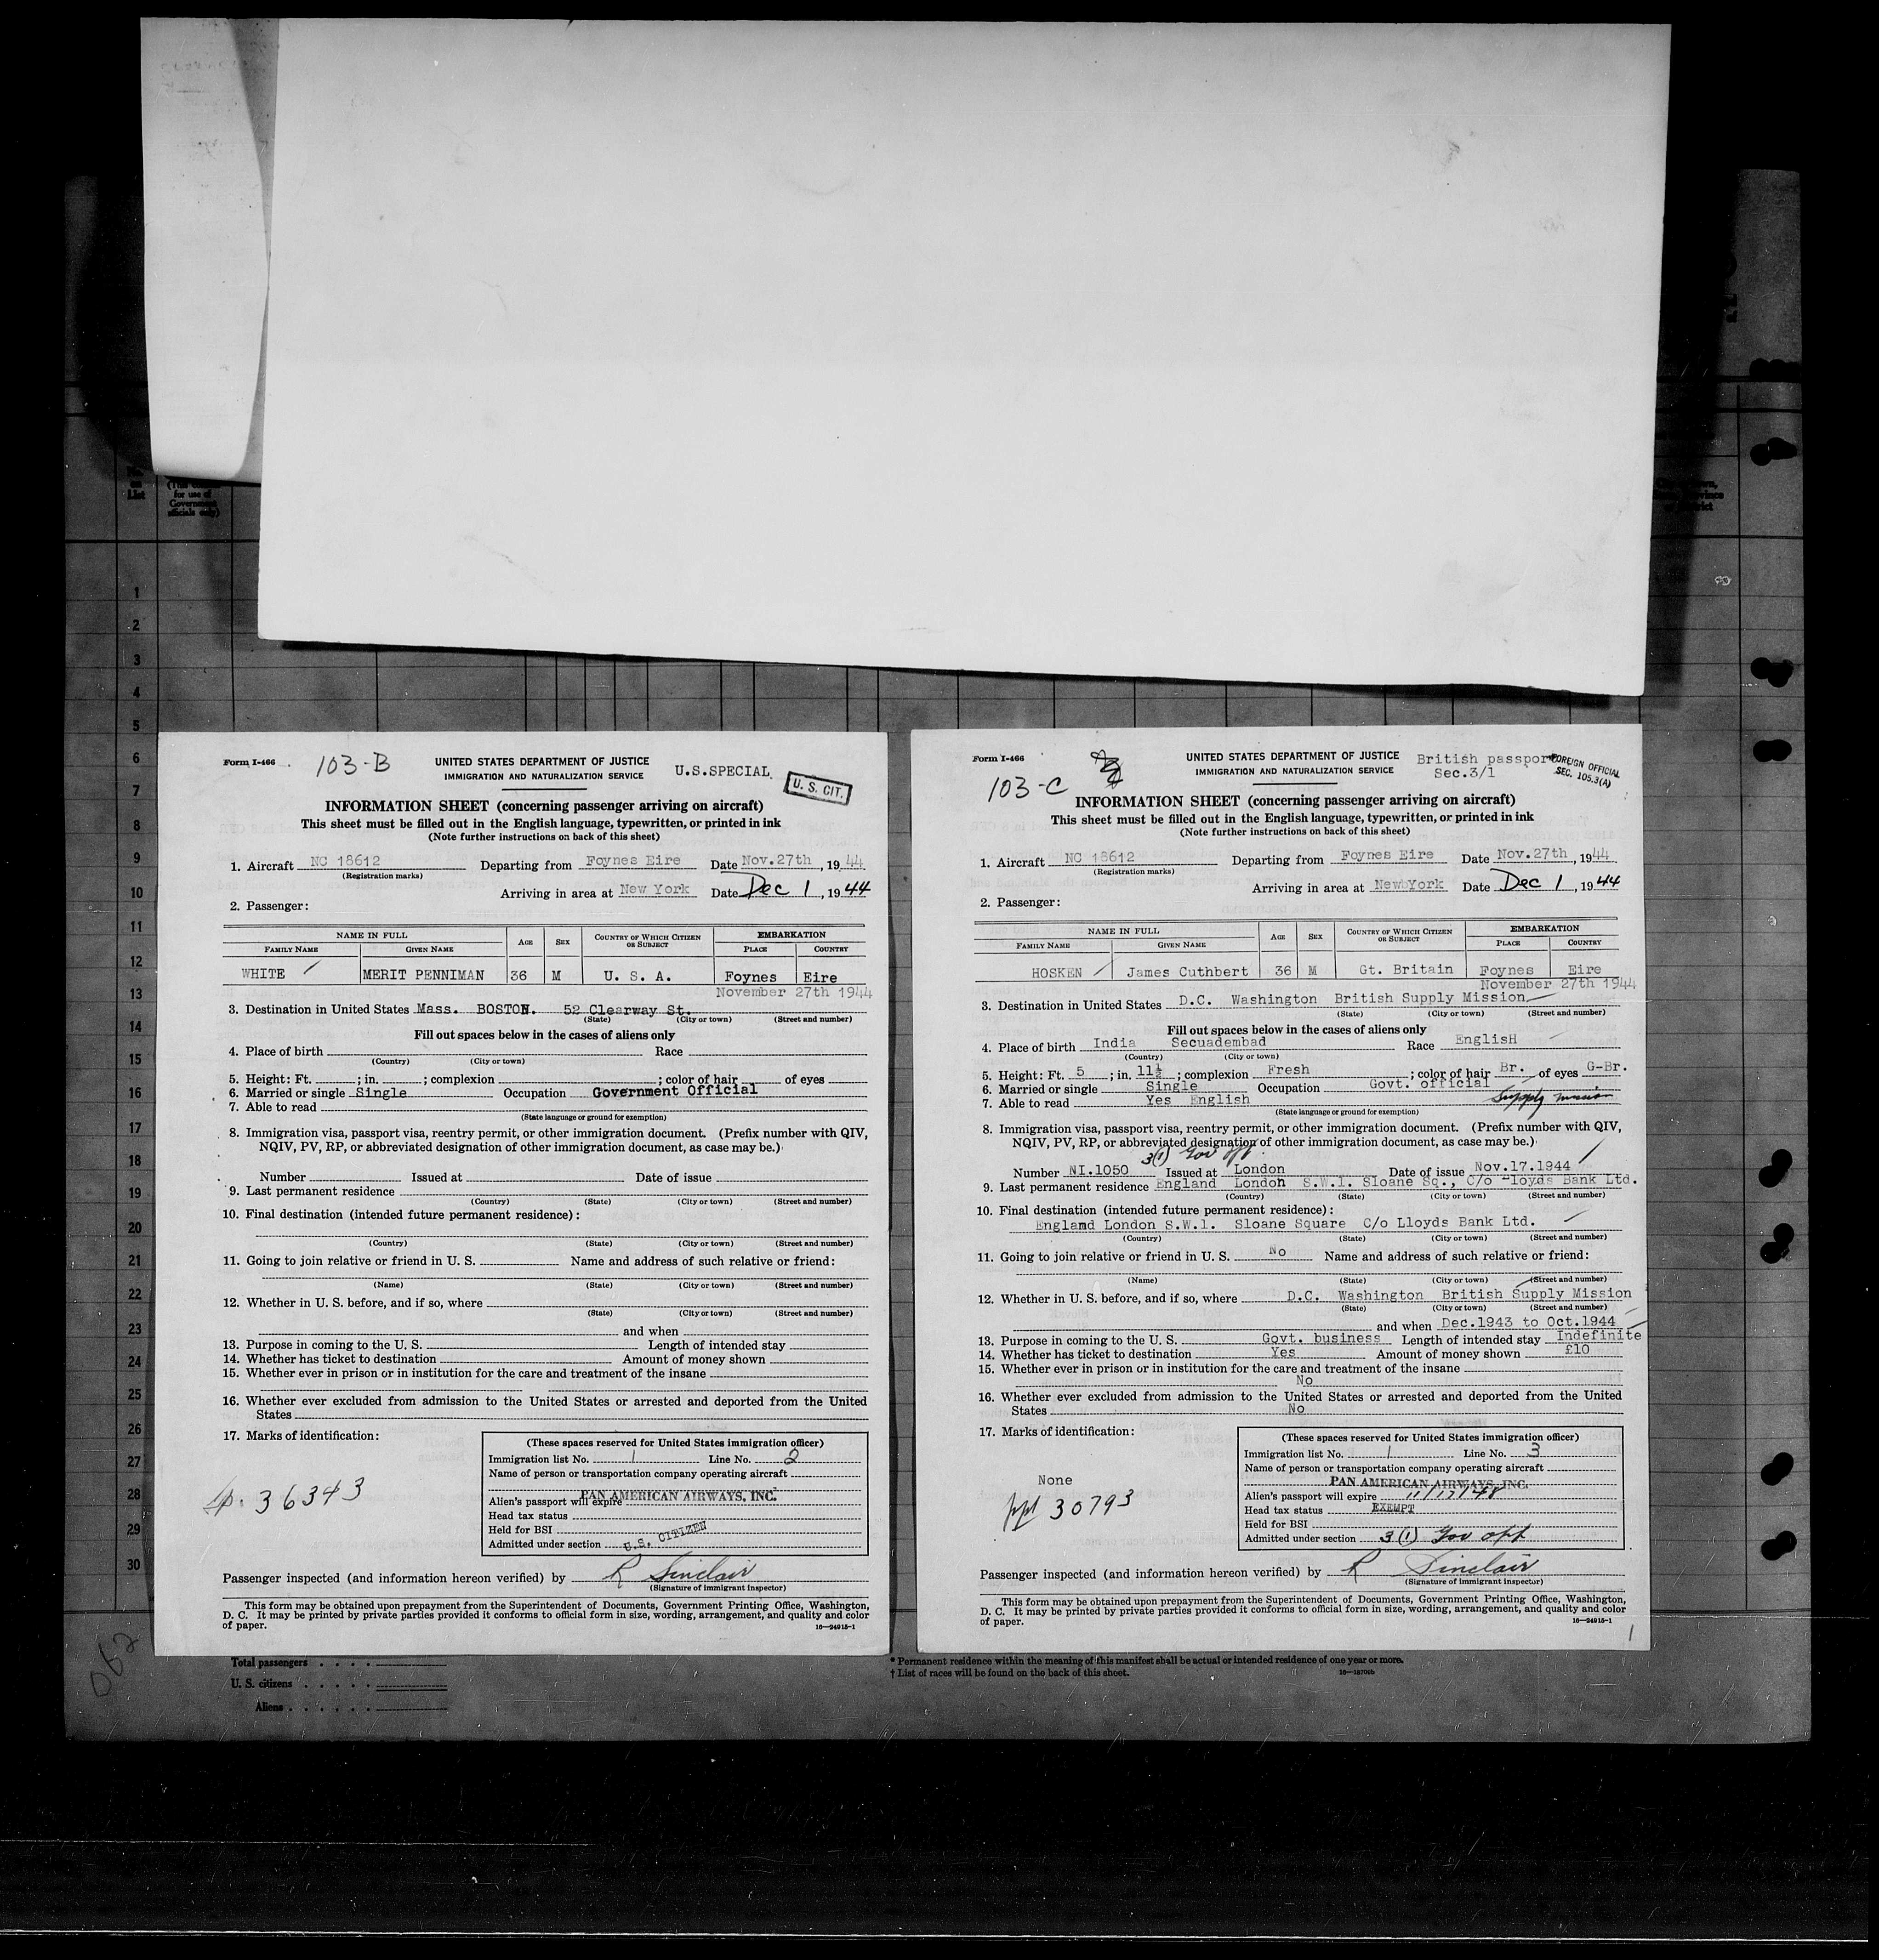 No.
on
List
for use of
Government
officials only)
1
2
3
4
5
6
7
8
9
10
11
12
13
14
15
16
17
18
19
20
21
22
23
24
25
26
27
28
29
30
Form I-466
103-B
UNITED STATES DEPARTMENT OF JUSTICE
IMMIGRATION AND NATURALIZATION SERVICE
U.S.SPECIAL
U. S. CIT.
INFORMATION SHEET (concerning passenger arriving on aircraft)
This sheet must be filled out in the English language, typewritten, or printed in ink
(Note further instructions on back of this sheet)
1. Aircraft NC 18612 Departing from Foynes Eire Date Nov.27th, 1944
(Registration marks)
Arriving in area at New York Date Dec 1, 1944
2. Passenger:
NAME IN FULL AGE SEX COUNTRY OF WHICH CITIZEN OR SUBJECT EMBARKATION
FAMILY NAME GIVEN NAME PLACE COUNTRY
WHITE MERIT PENNIMAN 36 M U. S. A. Foynes Eire
November 27th 1944
3. Destination in United States Mass. BOSTON. 52 Clearway St.
(State) (City or town) (Street and number)
Fill out spaces below in the cases of aliens only
4. Place of birth Race
(Country) (City or town)
5. Height: Ft. ; in. ; complexion ; color of hair of eyes
6. Married or single Single Occupation Government Official
7. Able to read
(State language or ground for exemption)
8. Immigration visa, passport visa, reentry permit, or other immigration document. (Prefix number with QIV,
NQIV, PV, RP, or abbreviated designation of other immigration document, as case may be.)
Number Issued at Date of issue
9. Last permanent residence
(Country) (State) (City or town) (Street and number)
10. Final destination (intended future permanent residence):
(Country) (State) (City or town) (Street and number)
11. Going to join relative or friend in U. S. Name and address of such relative or friend:
(Name) (State) (City or town) (Street and number)
12. Whether in U. S. before, and if so, where
(State) (City or town) (Street and number)
and when
13. Purpose in coming to the U. S. Length of intended stay
14. Whether has ticket to destination Amount of money shown
15. Whether ever in prison or in institution for the care and treatment of the insane
16. Whether ever excluded from admission to the United States or arrested and deported from the United
States
17. Marks of identification:
36343
(These spaces reserved for United States immigration officer)
Immigration list No. 1 Line No. 2
Name of person or transportation company operating aircraft
PAN AMERICAN AIRWAYS, INC.
Alien's passport will expire
Head tax status
Held for BSI
Admitted under section U.S. CITIZEN
Passenger inspected (and information hereon verified) by R Sinclair
(Signature of immigrant inspector)
This form may be obtained upon prepayment from the Superintendent of Documents, Government Printing Office, Washington,
D. C. It may be printed by private parties provided it conforms to official form in size, wording, arrangement, and quality and color
of paper.
16—24915-1
Form I-466
103-C
UNITED STATES DEPARTMENT OF JUSTICE
IMMIGRATION AND NATURALIZATION SERVICE
British passport
Sec.3/1
FOREIGN OFFICIAL
SEC. 105.3(A)
INFORMATION SHEET (concerning passenger arriving on aircraft)
This sheet must be filled out in the English language, typewritten, or printed in ink
(Note further instructions on back of this sheet)
1. Aircraft NC 18612 Departing from Foynes Eire Date Nov.27th, 1944
(Registration marks)
Arriving in area at NewbYork Date Dec 1, 1944
2. Passenger:
NAME IN FULL AGE SEX COUNTRY OF WHICH CITIZEN OR SUBJECT EMBARKATION
FAMILY NAME GIVEN NAME PLACE COUNTRY
HOSKEN James Cuthbert 36 M Gt. Britain Foynes Eire
November 27th 1944
3. Destination in United States D.C. Washington British Supply Mission
(State) (City or town) (Street and number)
Fill out spaces below in the cases of aliens only
4. Place of birth India Secuadembad Race EnglisH
(Country) (City or town)
5. Height: Ft. 5 ; in. 11½ ; complexion Fresh ; color of hair Br. of eyes G-Br.
6. Married or single Single Occupation Govt. official
Supply mission
7. Able to read Yes English
(State language or ground for exemption)
8. Immigration visa, passport visa, reentry permit, or other immigration document. (Prefix number with QIV,
NQIV, PV, RP, or abbreviated designation of other immigration document, as case may be.)
3(1) Gov off.
Number NI.1050 Issued at London Date of issue Nov.17.1944
9. Last permanent residence England London S.W.I. Sloane Sq., C/o Lloyds Bank Ltd.
(Country) (State) (City or town) (Street and number)
10. Final destination (intended future permanent residence):
England London S.W.1. Sloane Square C/o Lloyds Bank Ltd.
(Country) (State) (City or town) (Street and number)
11. Going to join relative or friend in U. S. No Name and address of such relative or friend:
(Name) (State) (City or town) (Street and number)
12. Whether in U. S. before, and if so, where D.C. Washington British Supply Mission
(State) (City or town) (Street and number)
and when Dec.1943 to Oct.1944
13. Purpose in coming to the U. S. Govt. business Length of intended stay Indefinite
14. Whether has ticket to destination Yes Amount of money shown £10
15. Whether ever in prison or in institution for the care and treatment of the insane
No
16. Whether ever excluded from admission to the United States or arrested and deported from the United
States No
17. Marks of identification:
None
ppt 30793
(These spaces reserved for United States immigration officer)
Immigration list No. 1 Line No. 3
Name of person or transportation company operating aircraft
PAN AMERICAN AIRWAYS, INC.
Alien's passport will expire 11/17/48
Head tax status EXEMPT
Held for BSI
Admitted under section 3(1) Gov off
Passenger inspected (and information hereon verified) by R Sinclair
(Signature of immigrant inspector)
This form may be obtained upon prepayment from the Superintendent of Documents, Government Printing Office, Washington,
D. C. It may be printed by private parties provided it conforms to official form in size, wording, arrangement, and quality and color
of paper.
16—24915-1
1
062
Total passengers
U. S. citizens
Aliens
* Permanent residence within the meaning of this manifest shall be actual or intended residence of one year or more.
† List of races will be found on the back of this sheet.